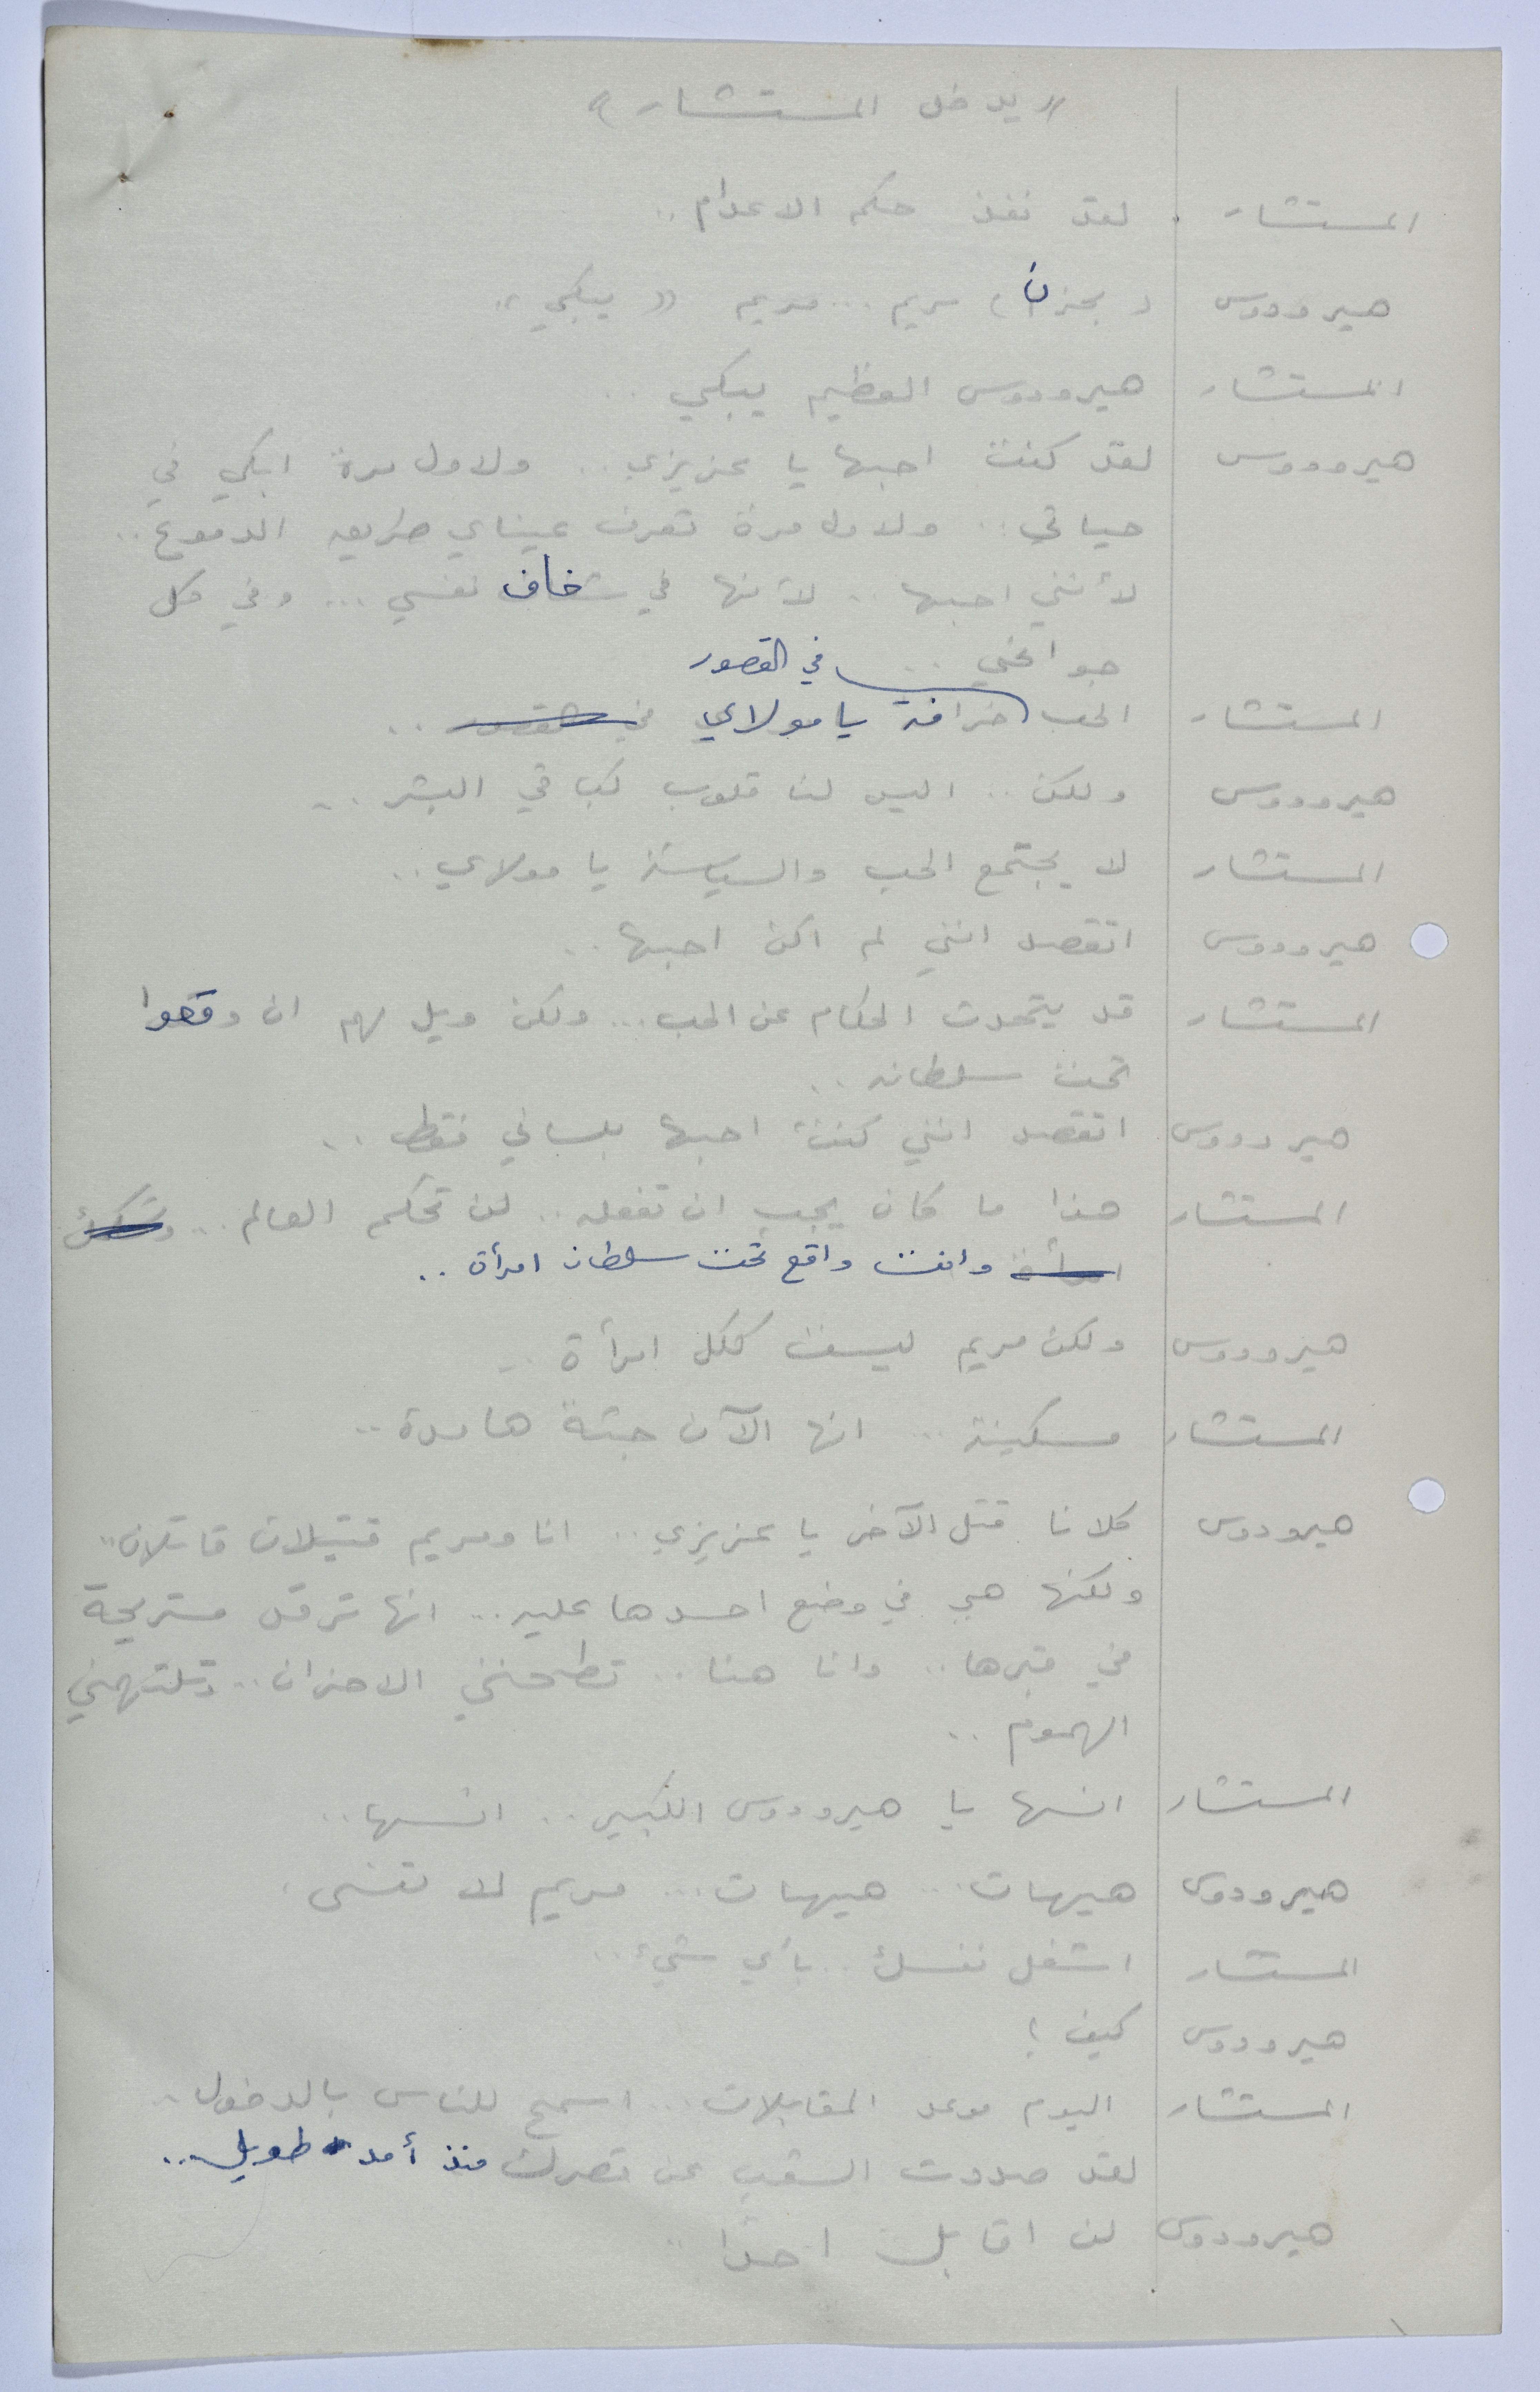 « يدخل المستشار »
المستشار لقد نفذ حكم الاعدام ..
هيرودوس ( بحزن ) مريم ... مريم « يبكي »
المستشار هيرودوس العظيم يبكي ..
هيرودوس لقد كنت احبها يا عزيزي .. ولاول مرة ابكي في
حياتي .. ولاول مرة تعرف عيناي طريق الدموع ..
لأنني احبها . لأنها في شغاف نفسي ... وفي كل
جوانحي ..
في القصور
المستشار الحب خرافة يا مولاي في القصور ..
هيرودوس ولكن .. اليس لنا قلوب كباقي البشر ..
المستشار لا يجتمع الحب والسياسة يا مولاي ..
هيرودوس اتقصد انني لم اكن احبها ..
المستشار قد يتحدث الحكام عن الحب ... ولكن ويل لهم ان وقعوا
تحت سلطانه ..
هيرودوس اتقصد انني كنت احبها بلساني فقط ..
المستشار هذا ما كان يجب ان تفعله .. لن تحكم العالم ..
امرأة وانت واقع تحت سلطان امرأة ..
هيرودوس ولكن مريم ليست ككل امرأة ..
المستشار مسكينة .. انها الآن جثة هامدة ..
هيرودوس كلانا قتل الآخر يا عزيزي .. انا ومريم قتيلان قاتلان ..
ولكنها هي في وضع احسدها عليه .. انها ترقد مستريحة
في قبرها .. وانا هنا .. تطحنني الاحزان .. وتلتهمني
الهموم ..
المستشار انسها يا هيرودوس الكبير .. انسها ..
هيرودوس هيهات ... هيهات ... مريم لا تنسى .
المستشار اشغل نفسك .. بأي شيء ..
هيرودوس كيف ؟
المستشار اليوم موعد المقابلات ... اسمح للناس بالدخول ..
لقد صددت الشعب عن قصرك منذ أمد طويل ..
هيرودوس لن اقابل احدا ..